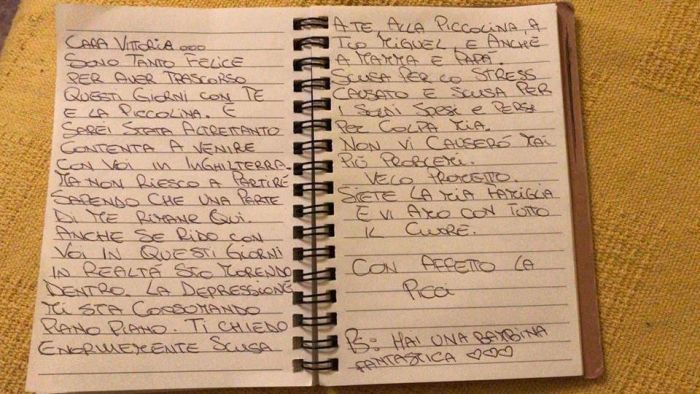 CARA VITTORIA...
SONO TANTO FELICE
PER AVER TRASCORSO
QUESTI GIORNI CON TE
E LA PICCOLINA. E
SAREI STATA ALTRETTANTO
CONTENTA A VENIRE
CON VOI IN INGHILTERRA.
MA NON RIESCO A PARTIRE
SAPENDO CHE UNA PARTE
DI ME RIMANE QUI.
ANCHE SE RIDO CON
VOI IN QUESTI GIORNI
IN REALTÀ STO MORENDO
DENTRO. LA DEPRESSIONE
MI STA CONSUMANDO
PIANO PIANO. TI CHIEDO
ENORMEMENTE SCUSA
A TE ALLA PICCOLINA, A
TIO MIGUEL, E ANCHE
A MAMMA E PAPÀ.
SCUSA PER LO STRESS
CAUSATO E SCUSA PER
I SOLDI SPESI E PERSI
PER COLPA MIA.
NON VI CAUSERÒ MAI
PIÙ PROBLEMI.
VELO PROMETTO.
SIETE LA MIA FAMIGLIA
E VI AMO CON TUTTO
IL CUORE.
CON AFFETTO LA
PICCI
PS: HAI UNA BAMBINA
FANTASTICA ♡♡♡